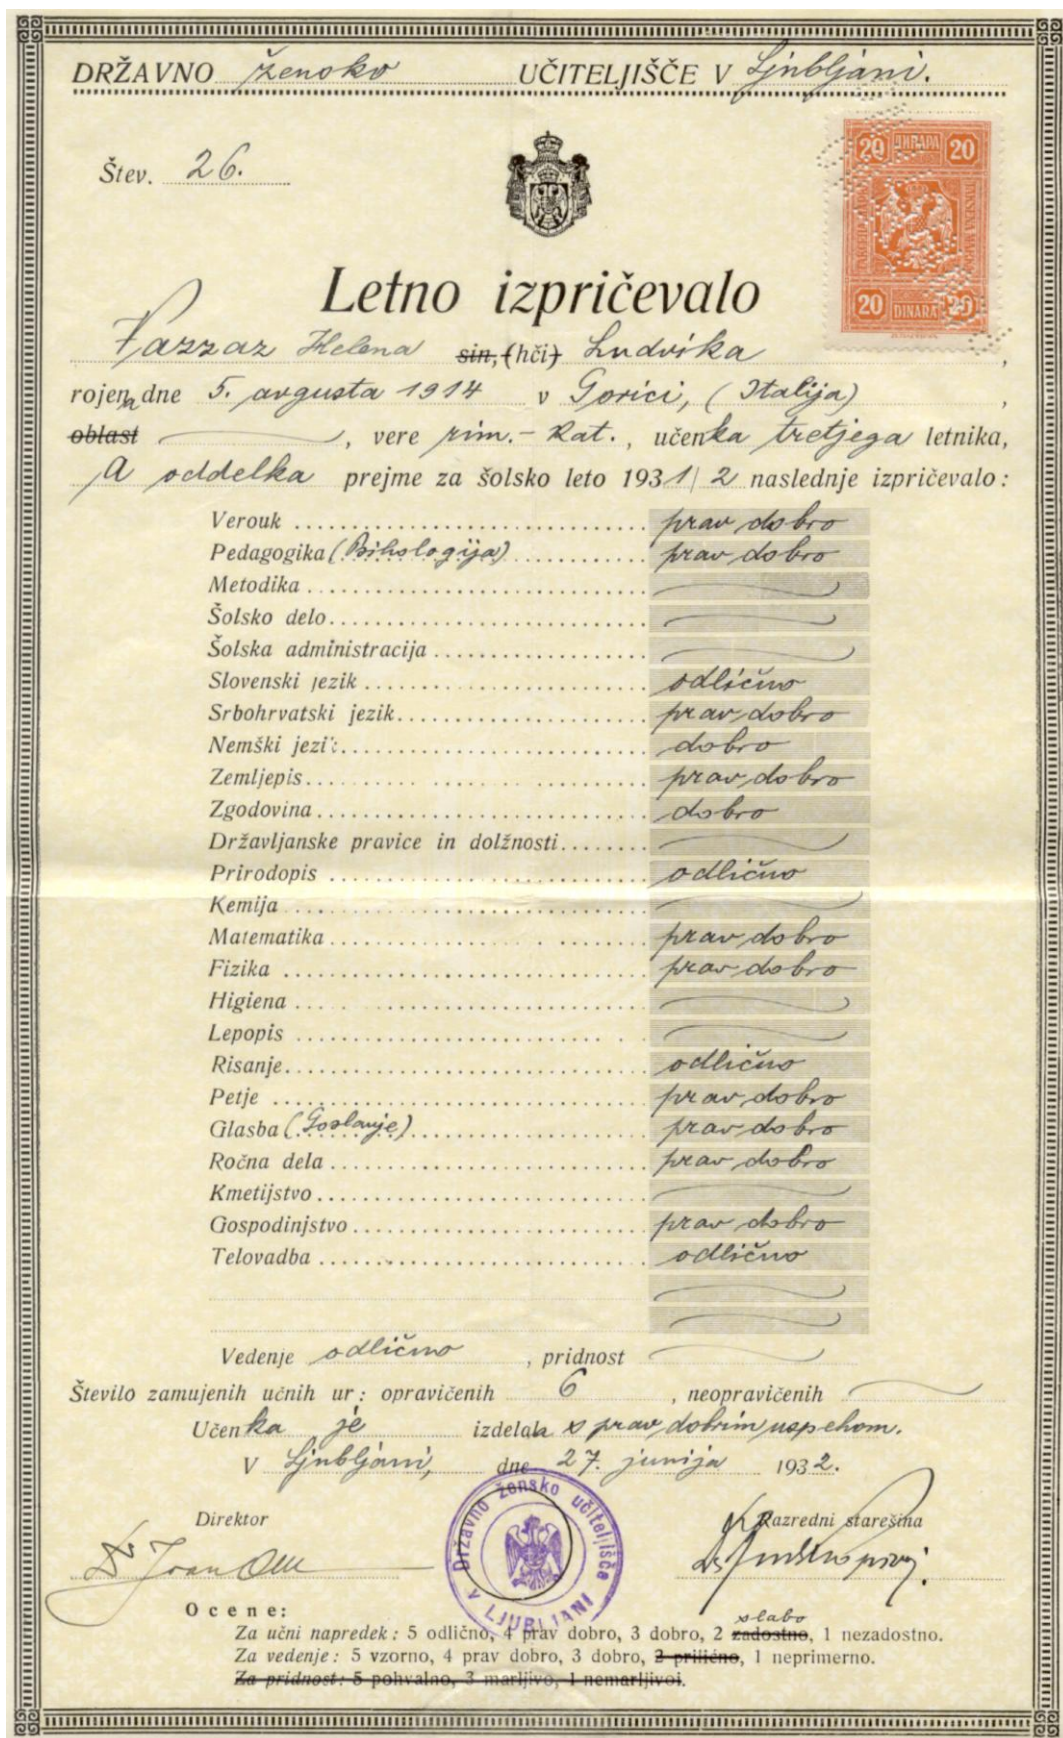 DRŽAVNO žensko UČITELJIŠČE V Ljubljani.
Štev. 26.
20 ДИНАРА 20
20 DINARA 20
Letno izpričevalo
Vazzaz Helena sin, (hči) Ludvika,
rojena dne 5. avgusta 1914 v Gorici, (Italija),
oblast, vere rim.-kat., učenka tretjega letnika,
A oddelka prejme za šolsko leto 1931/2 naslednje izpričevalo:
Verouk prav dobro
Pedagogika (Psihologija) prav dobro
Metodika
Šolsko delo
Šolska administracija
Slovenski jezik odlično
Srbohrvatski jezik prav dobro
Nemški jezik dobro
Zemljepis prav dobro
Zgodovina dobro
Državljanske pravice in dolžnosti
Prirodopis odlično
Kemija
Matematika prav dobro
Fizika prav dobro
Higiena
Lepopis
Risanje odlično
Petje prav dobro
Glasba (Goslanje) prav dobro
Ročna dela prav dobro
Kmetijstvo
Gospodinjstvo prav dobro
Telovadba odlično
Vedenje odlično, pridnost
Število zamujenih učnih ur: opravičenih 6, neopravičenih
Učenka je izdelala s prav dobrim uspehom.
V Ljubljani, dne 27. junija 1932.
Državno žensko učiteljišče
v LJUBLJANI
Direktor Razredni starešina
Dr Ivan
Ocene:
slabo
Za učni napredek: 5 odlično, 4 prav dobro, 3 dobro, 2 zadostno, 1 nezadostno.
Za vedenje: 5 vzorno, 4 prav dobro, 3 dobro, 2 prilično, 1 neprimerno.
Za pridnost: 5 pohvalno, 3 marljivo, 1 nemarljivoi.